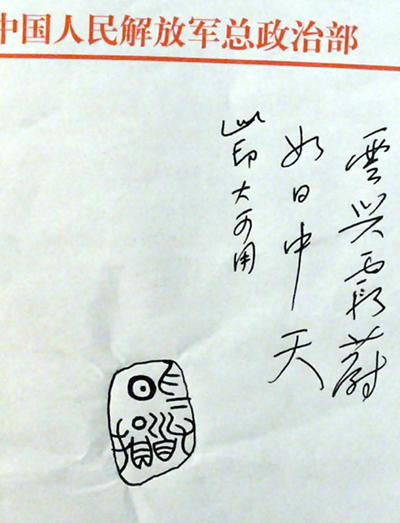 中国人民解放军总政治部
雲兴霞蔚
如日中天
此印大可用